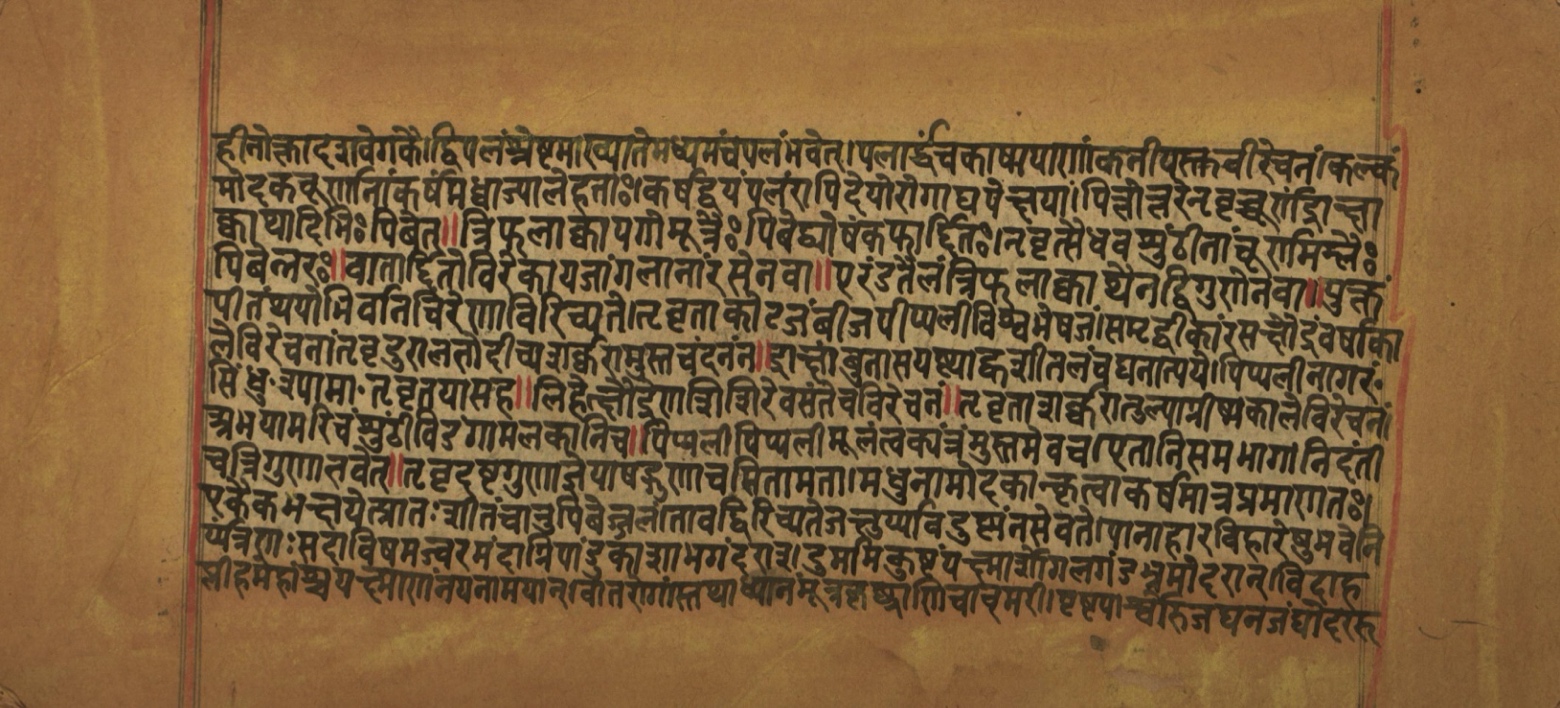 हीनोक्तादशवेगकै।द्विपलंश्रेष्टमाख्यातंमध्यमंचपलंभवेत्।पलार्द्धंचकाषायाणां।कनीयस्तुविरेचनं।कल्क
मोदकचूर्णानांकर्षंमध्वाज्यालेहनाः।कर्षद्वयंपलंरापिदेयोरोगाद्यपेक्षया।पित्तोत्तरेनवृच्चूर्णंद्राक्षा
क्वाथादिभिःपिबेत्॥त्रिफलाक्वाथगोमूत्रैःपिबेद्व्योषंकफार्द्दितः।नवृत्सैंधवस्तुंठीनांचूर्णामम्लैः
पिबेन्नरः॥वातार्द्दितोविरेकायजांगलानांरसेनवा॥एरंडतैलंत्रिफलाक्वाथेनद्विगुणेनवा॥युक्तं
पीतंथयोभिर्वानचिरेणविरिच्यते।तृवृताकौटजंबीजंपीप्पलीविश्वभेषजं।समृद्वीकांरसक्षौद्रंवर्षाका
लेविरेचनं।तृवृदुरालतोदीच्यशर्क्करामुस्तचंदनंन॥द्राक्षांबुनासयष्ट्याह्वशीतलंचघनात्यये।पिप्पलीनागरं·
सिंधु·श्यामा·तृवृतयासह॥लिहेत्क्षौद्रेणशिशिरेवसंतेचविरेचनं॥तृवृताशर्क्करातुल्याग्रीष्मकालेविरेचनं
अभयामरिचंस्तुंठीविडंगामलकानिच॥पिप्पलीपिप्पलीमूलंत्वक्यंत्रंमुस्तमेवच।एतानिसमभागानिदंती
चत्रिगुणाभवेत्॥तृवृदष्टगुणाज्ञेयाषड्गुणाचसितामता।मधुनामोदकान्कृत्वाकर्षमात्रप्रमाणतः।
एकैकंभक्षयेत्प्रातःशीतंचानुपिबेज्जलं।तावद्विरिच्यतेजंतुर्य्यावदुष्णंनसेवते।पानाहारविहारेषुभवेन्नि
र्य्यंत्रणःसदाविषमज्वरमंदाग्निपांडुकाशभगंदरान्।दुर्नामकुष्टंयक्ष्मार्शोगलगंडभ्रमोदरान्।विदाह
प्लीहमेहांश्चयक्ष्माणंनयनामयान्।वातरोगांस्तथाध्यानमूत्रकृछ्राणिचाश्मरी।पृष्टपार्श्वोरुजघनजंघोदररु